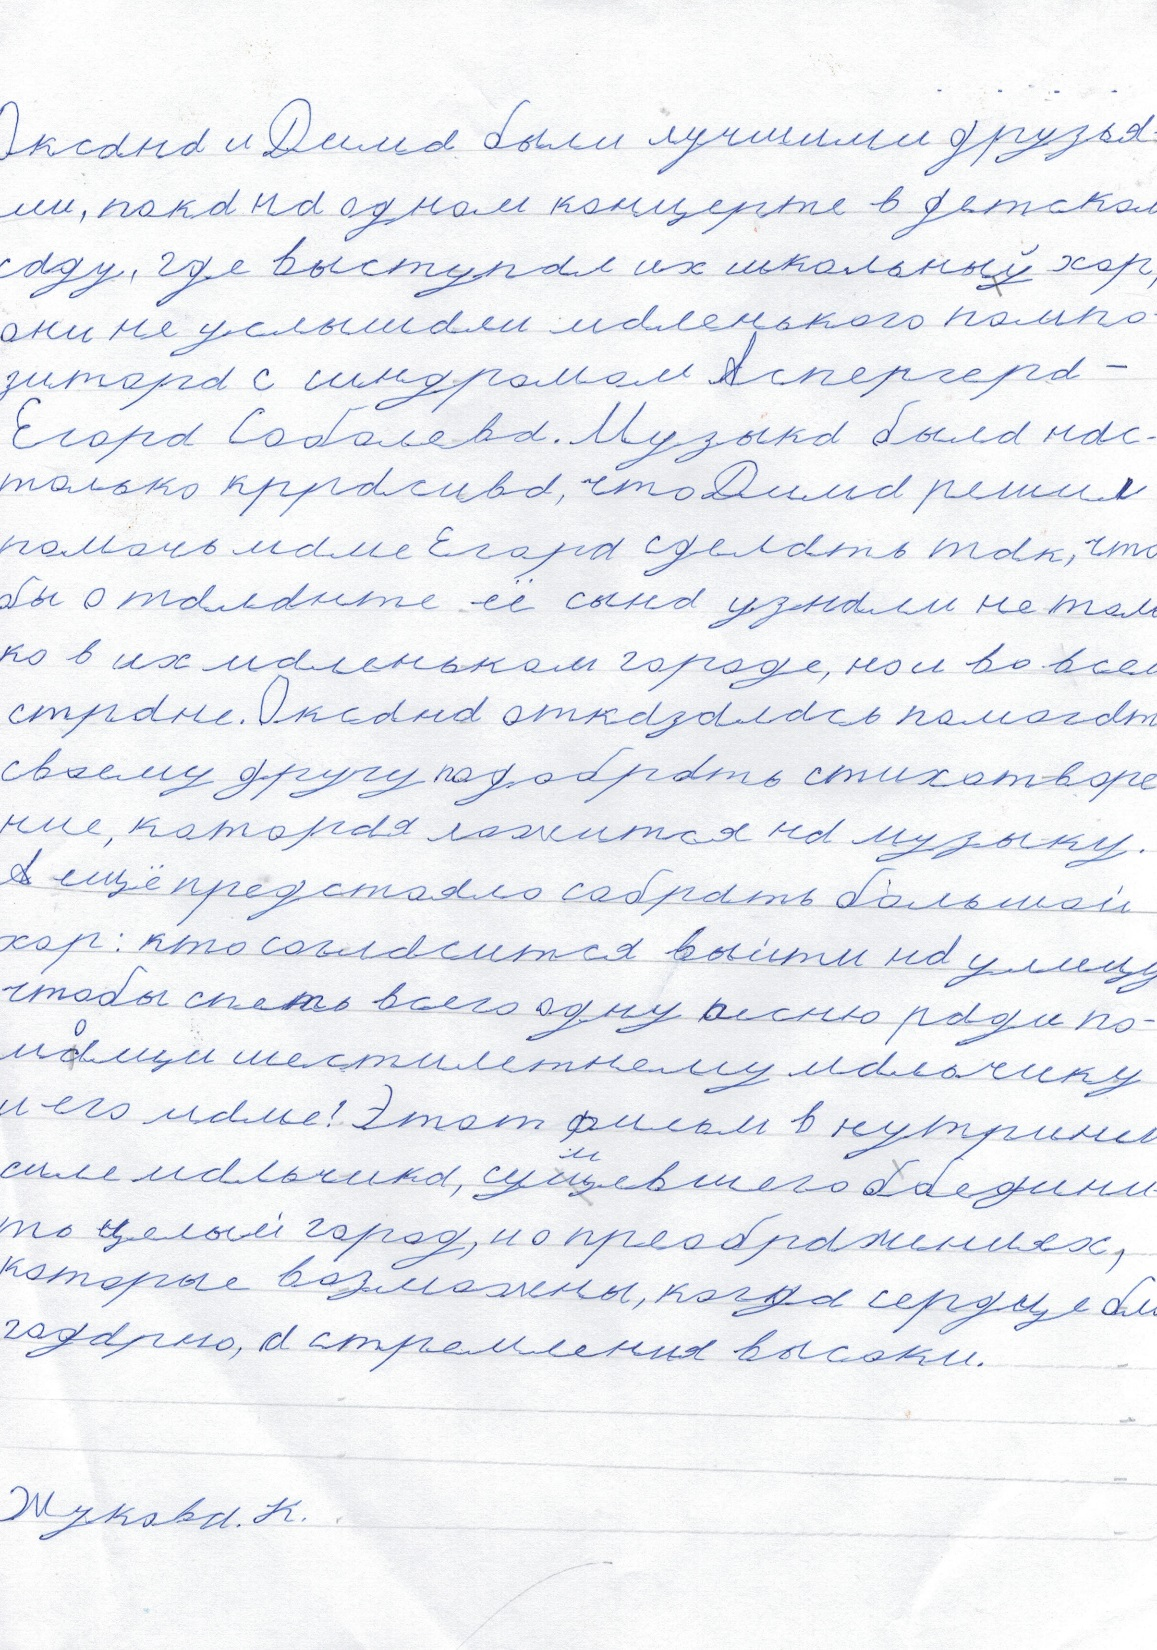 Оксана и Дима были лучшими друзья-
ми, пока на одном концерте в детском
саду, где выступал их школьный хор,
они не услышали маленького помпо-
зитора с синдромом Аспергера -
Егора Соболева. Музыка была нас-
только крраасива, что Дима решил
помочь маме Егора сделать так, что
бы о таланте её сына узнали не толь
ко в их маленьком городе, но и во всей
стране. Оксана отказалась помогат
своему другу подобрать стихотворе
ние, которая ложится на музыку.
А ещё предстояло собрать большой
хор: кто согласится выйти на улицу
чтобы спеть всего одну песню ради по-
мощи шестилетнему мальчику
и его маме! Этот фильм в нутринии
силе мальчика, сумевшего обоедини
то целый город, и о преображениях,
которые возможны, когда сердце бла
годарно, а стремления высоки.
Жукова. К.